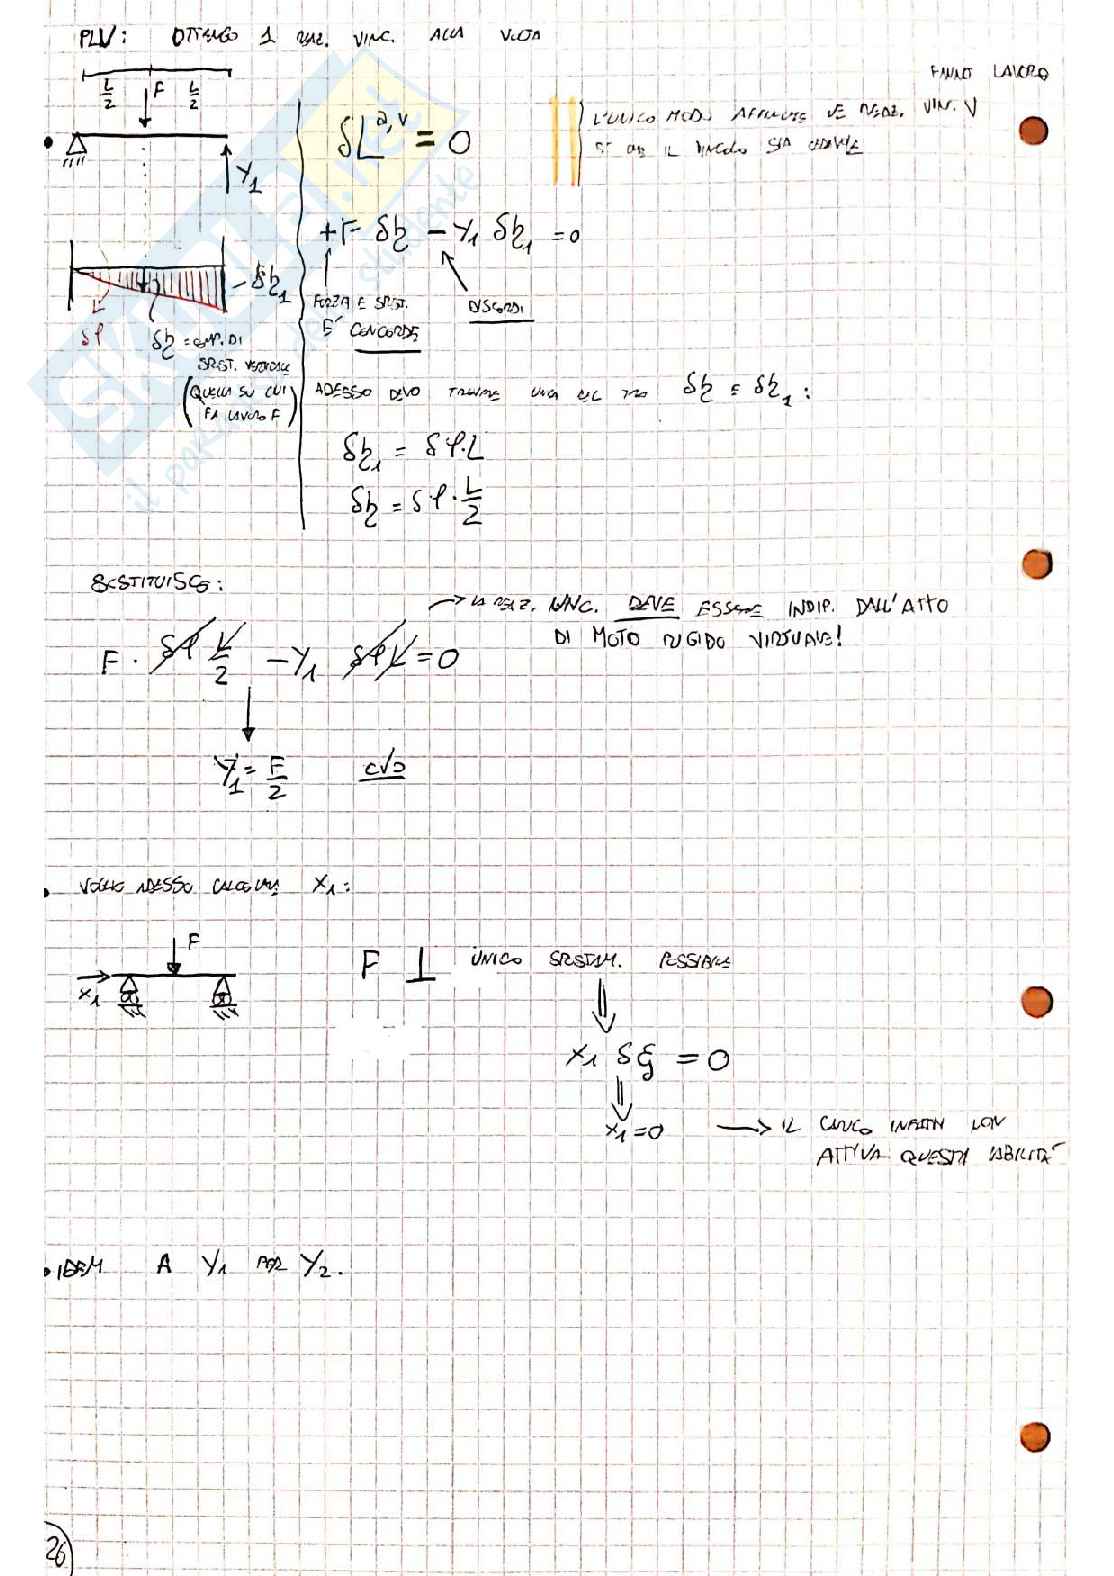 PLV: OTTENGO 1 REAZ. VINC. ALLA VOLTA
L/2 F L/2
Y₁
δL^{a,v} = 0
L'UNICO MODO AFFINCHÈ LE REAZ. VINC. V FANNO LAVORO
È CHE IL VINCOLO SIA
+F δη - Y₁ δη₁ = 0
FORZA E SPOST.
E' CONCORDE
DISCORDI
δη₁
δφ
δη = COMP. DI
SPOST. VERTICALE
(QUELLA SU CUI
FA LAVORO F)
ADESSO DEVO TROVARE UNA REL TRA δη E δη₁:
δη₁ = δφ·L
δη = δφ·L/2
SOSTITUISCO:
→ LA REAZ. VINC. DEVE ESSERE INDIP. DALL'ATTO
DI MOTO RIGIDO VIRTUALE!
F · δφ L/2 - Y₁ δφ L = 0
Y₁ = F/2 CVD
• VOGLIO ADESSO CALCOLARE X₁:
F
X₁
F ⊥ UNICO SPOSTAM. POSSIBILE
X₁ δξ = 0
X₁ = 0 → IL CARICO INFATTI NON
ATTIVA QUESTA LABILITÀ
• IDEM A Y₁ PER Y₂.
26
SKUOLA.net